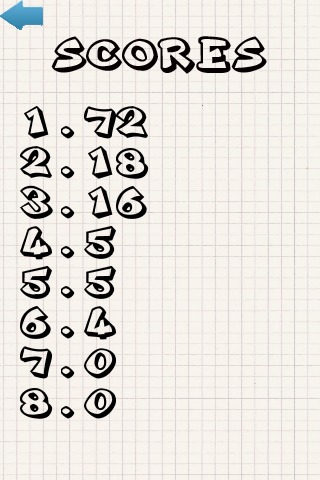 SCORES
1.72
2.18
3.16
4.5
5.5
6.4
7.0
8.0